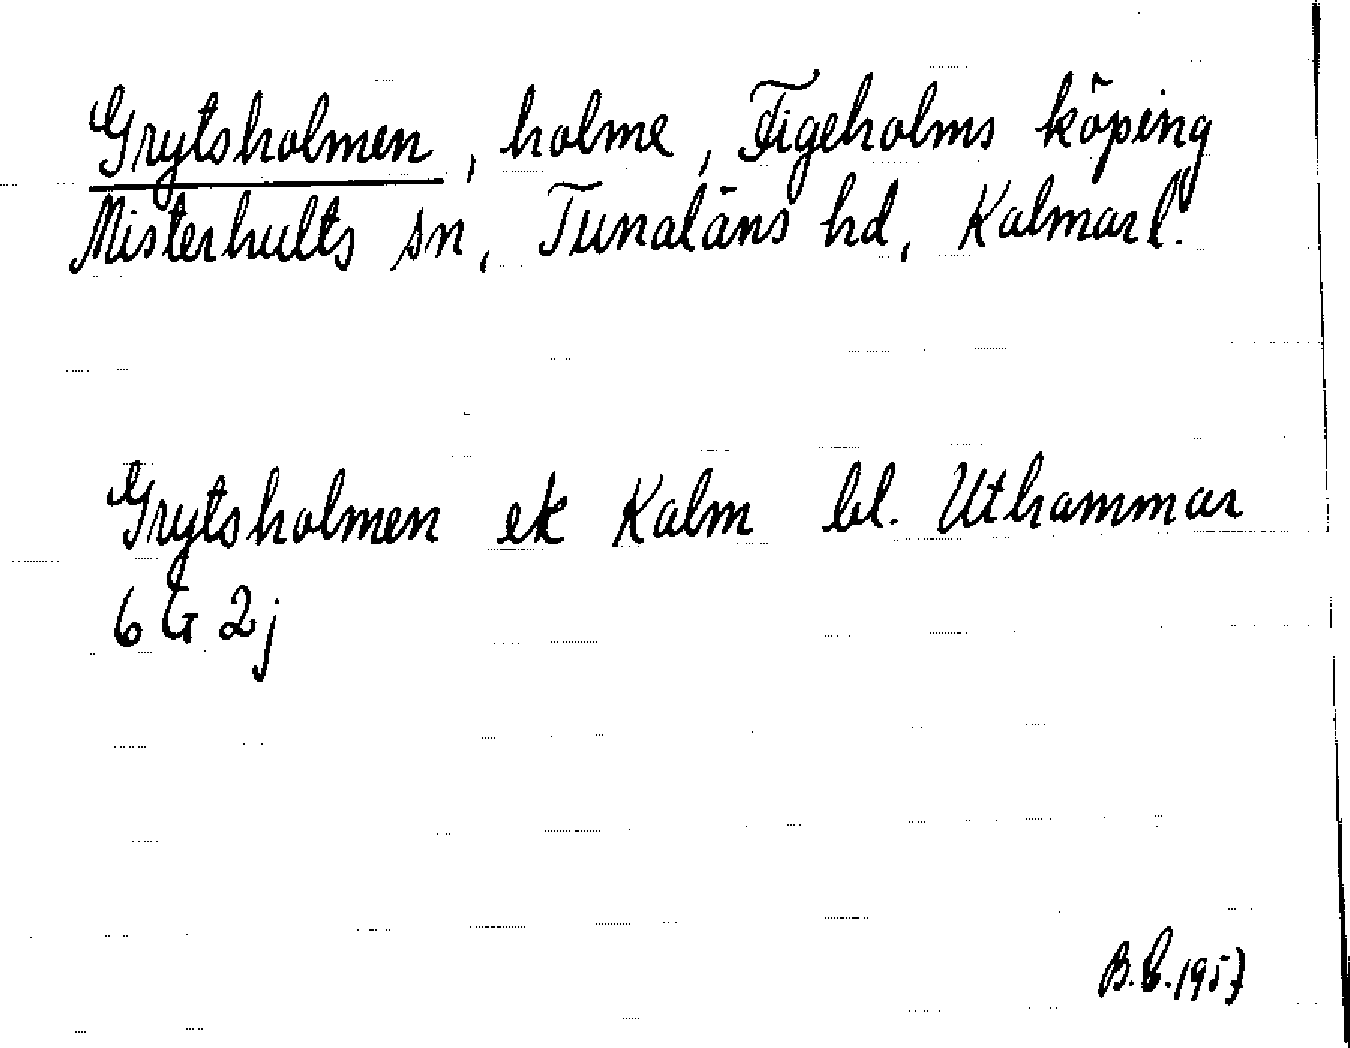 Grytsholmen, holme, Figeholms köping
Misterhults sn, Tunaläns hd, Kalmar l.
Grytsholmen ek Kalm bl. Uthammar
6 G 2j
B.E. 1957